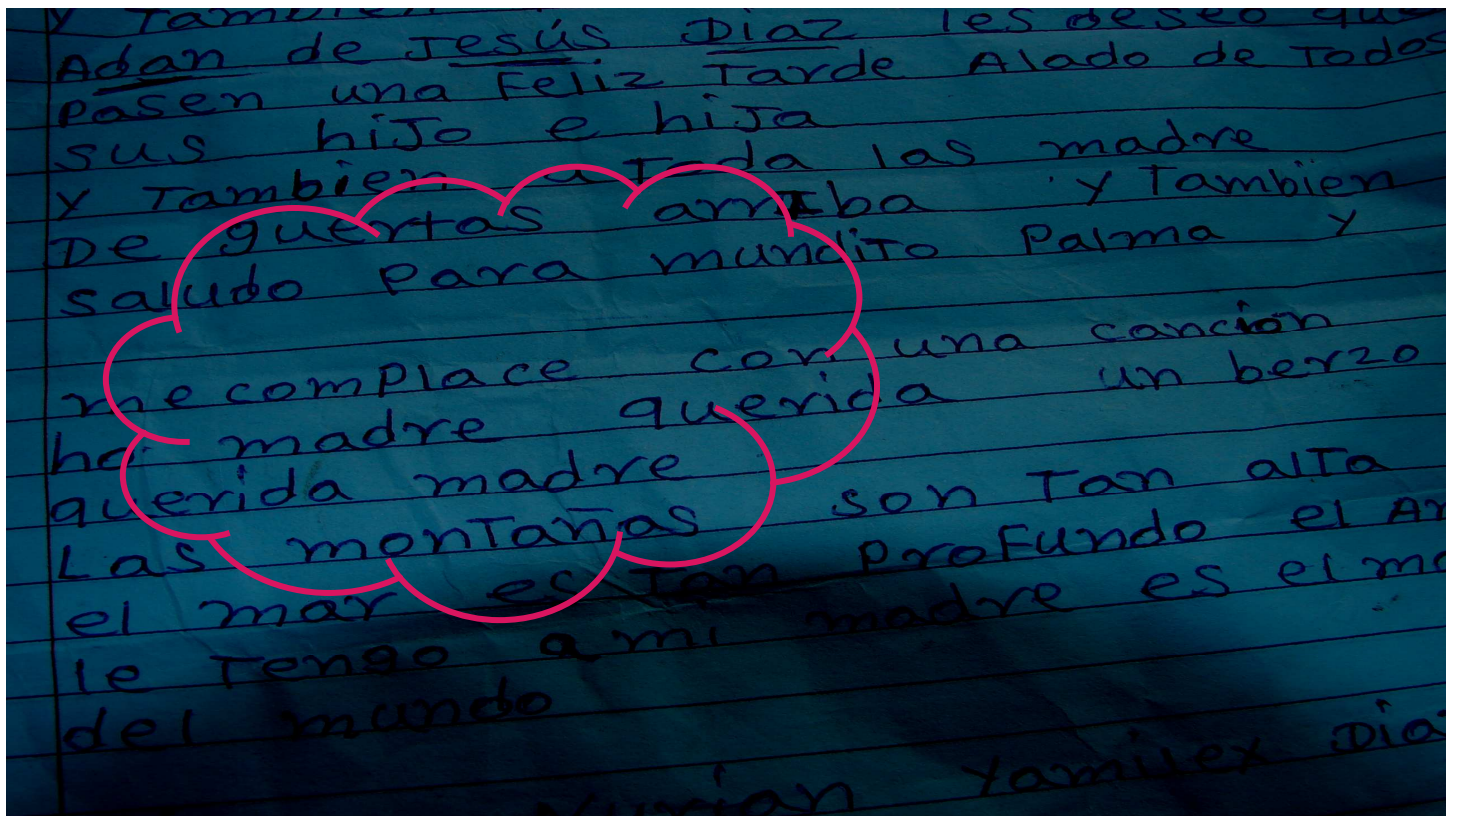 y Tambien les deseo que
Adan de Jesús Diaz
Pasen una Feliz Tarde Alado de Todos
sus hiJo e hiJa
y Tambien a Toda las madre
De guertas arriba y Tambien
saludo Para mundito Palma y
me comPlace con una canción
ha madre querida un berzo
querida madre
Las monTañas son Tan alTa
el mar es Tan ProFundo el
le Tengo a mi madre es el
del mundo
Yamilex Dia